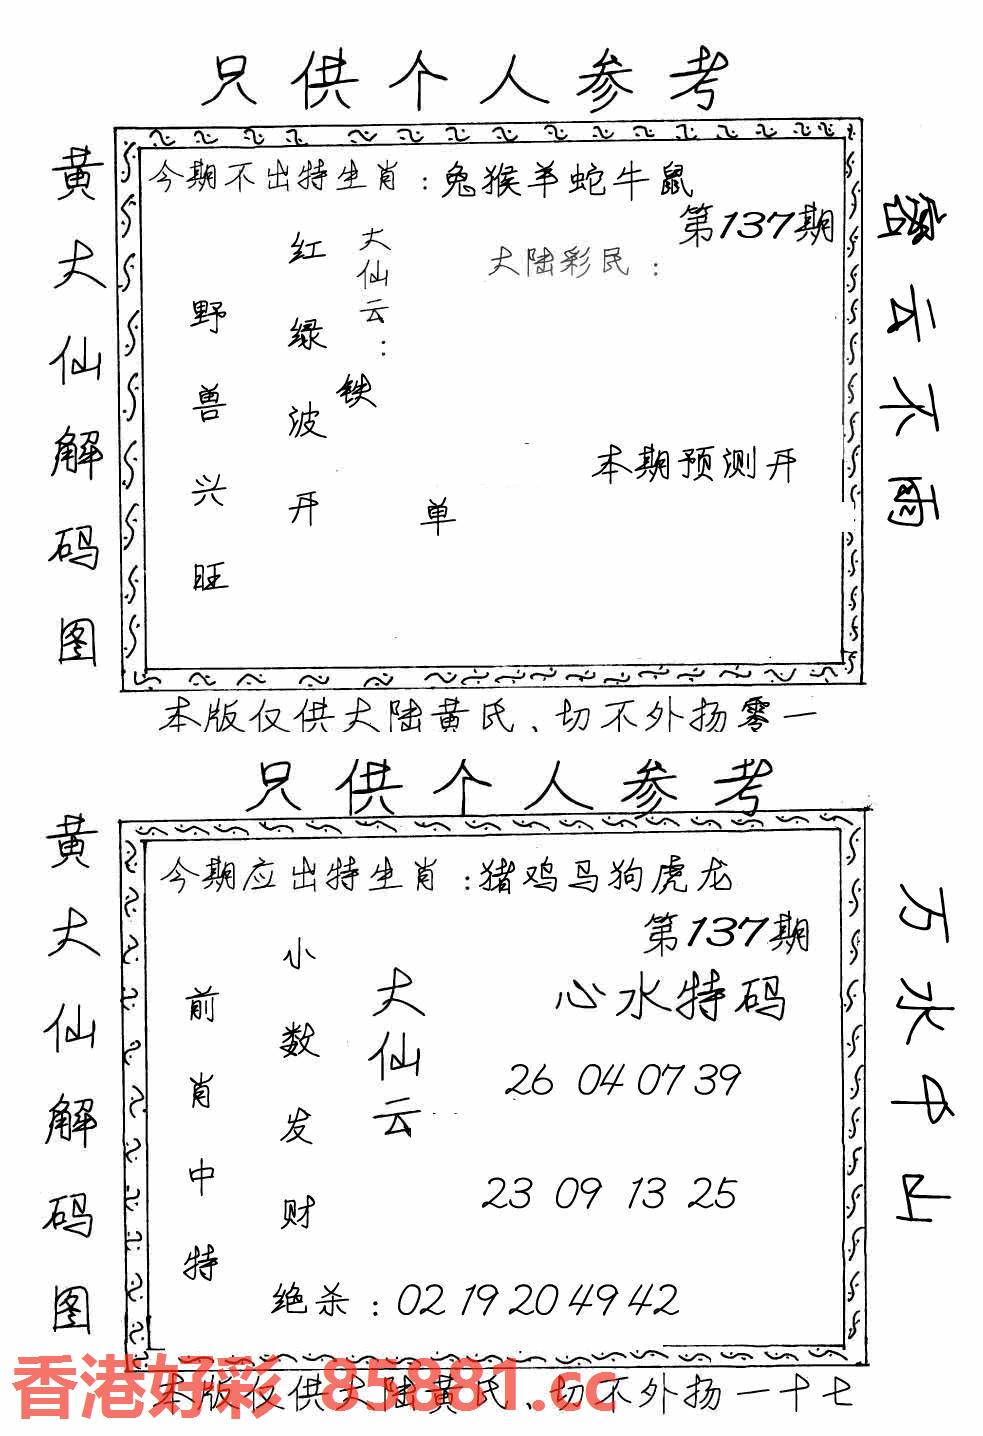 只供个人参考
黄大仙解码图
今期不出特生肖：兔猴羊蛇牛鼠
第137期
大陆彩民：
大仙云：
铁
红绿波开
单
野兽兴旺
本期预测开
密云不雨
本版仅供大陆黄氏、切不外扬零一
只供个人参考
黄大仙解码图
今期应出特生肖：猪鸡马狗虎龙
第137期
心水特码
大仙云
小数发财
前肖中特
26 04 07 39
23 09 13 25
绝杀：02 19 20 49 42
万水中山
本版仅供大陆黄氏、切不外扬一十七
香港好彩 85881.cc